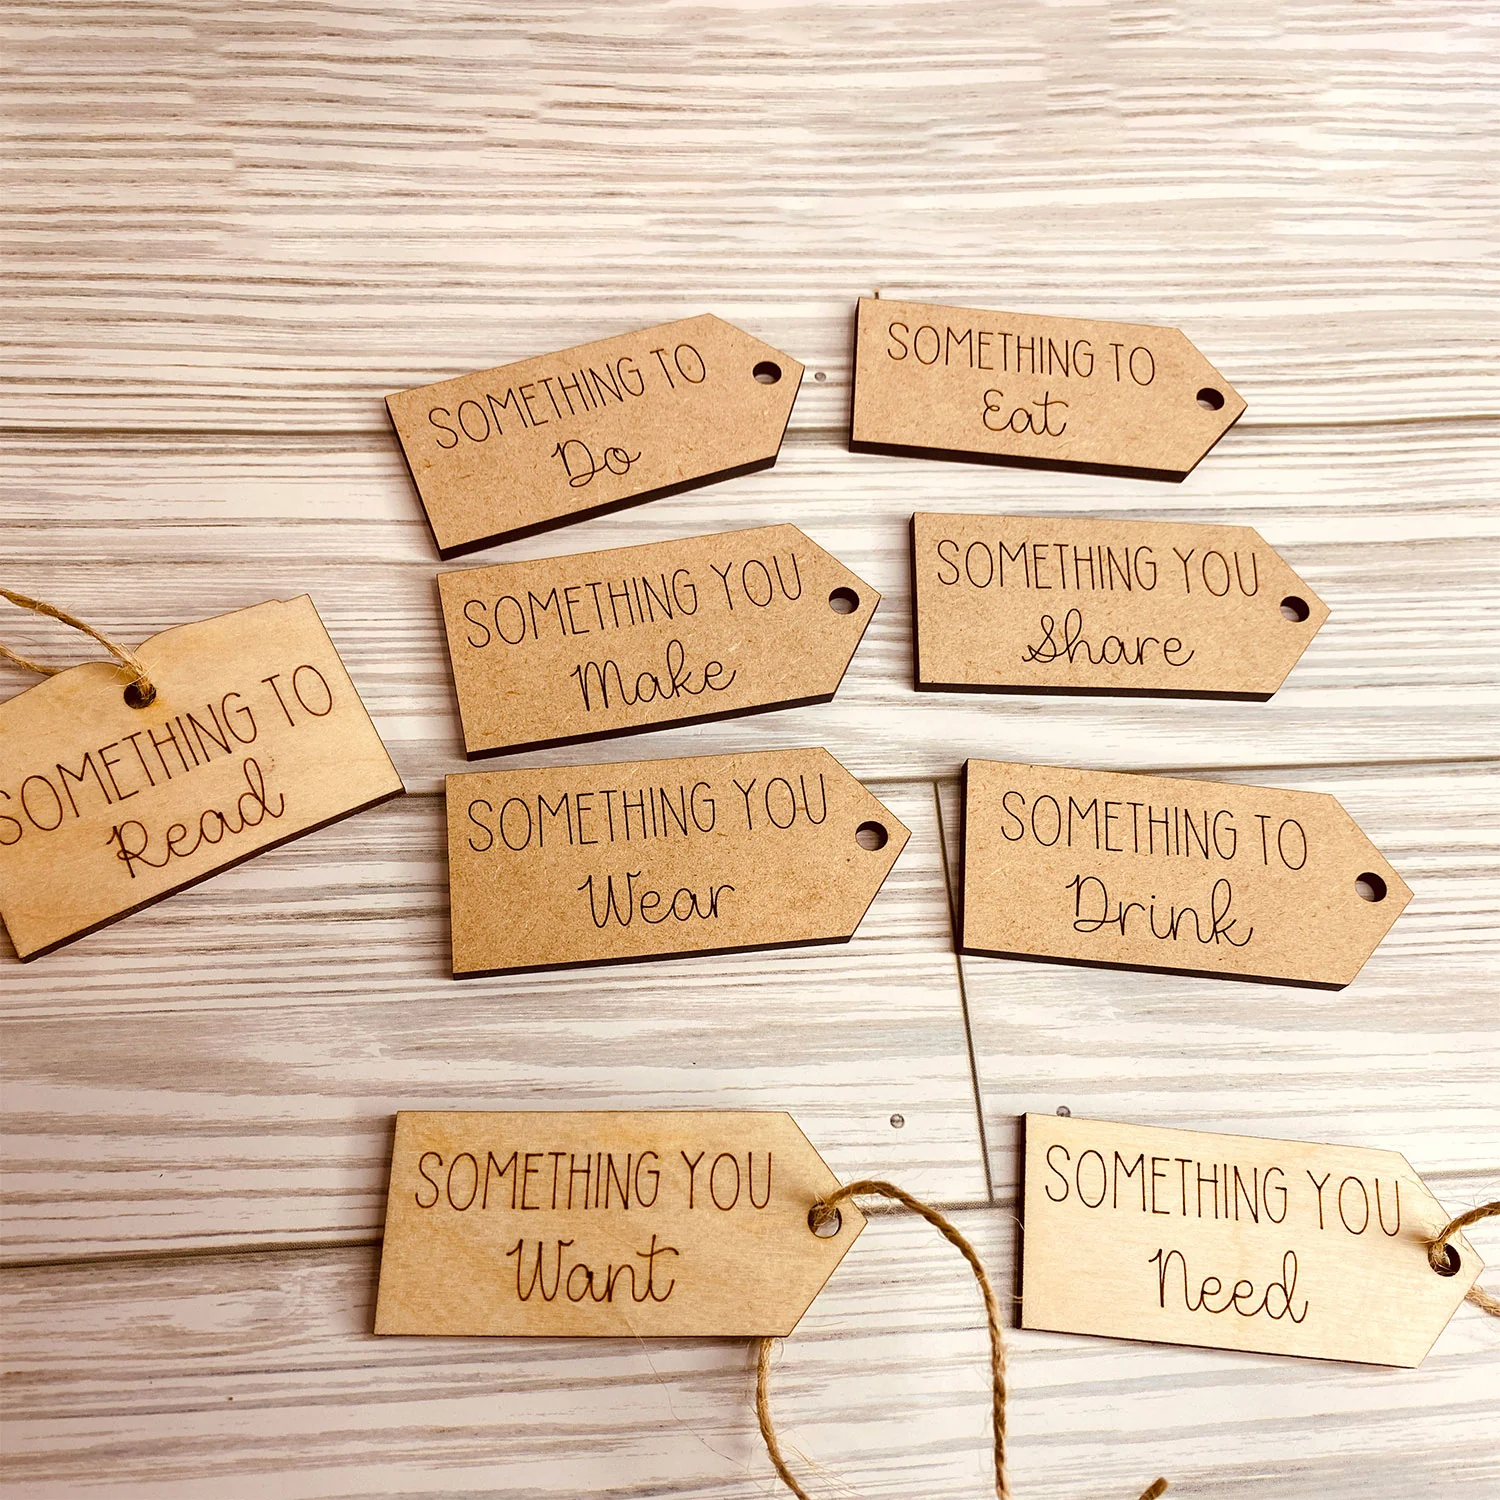 SOMETHING TO
Do
SOMETHING TO
Eat
SOMETHING YOU
Make
SOMETHING YOU
Share
SOMETHING TO
Read
SOMETHING YOU
Wear
SOMETHING TO
Drink
SOMETHING YOU
Want
SOMETHING YOU
Need